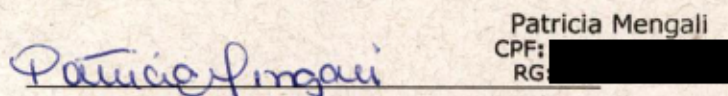 Patricia Mengali
CPF:
RG:
Patricia Mengali